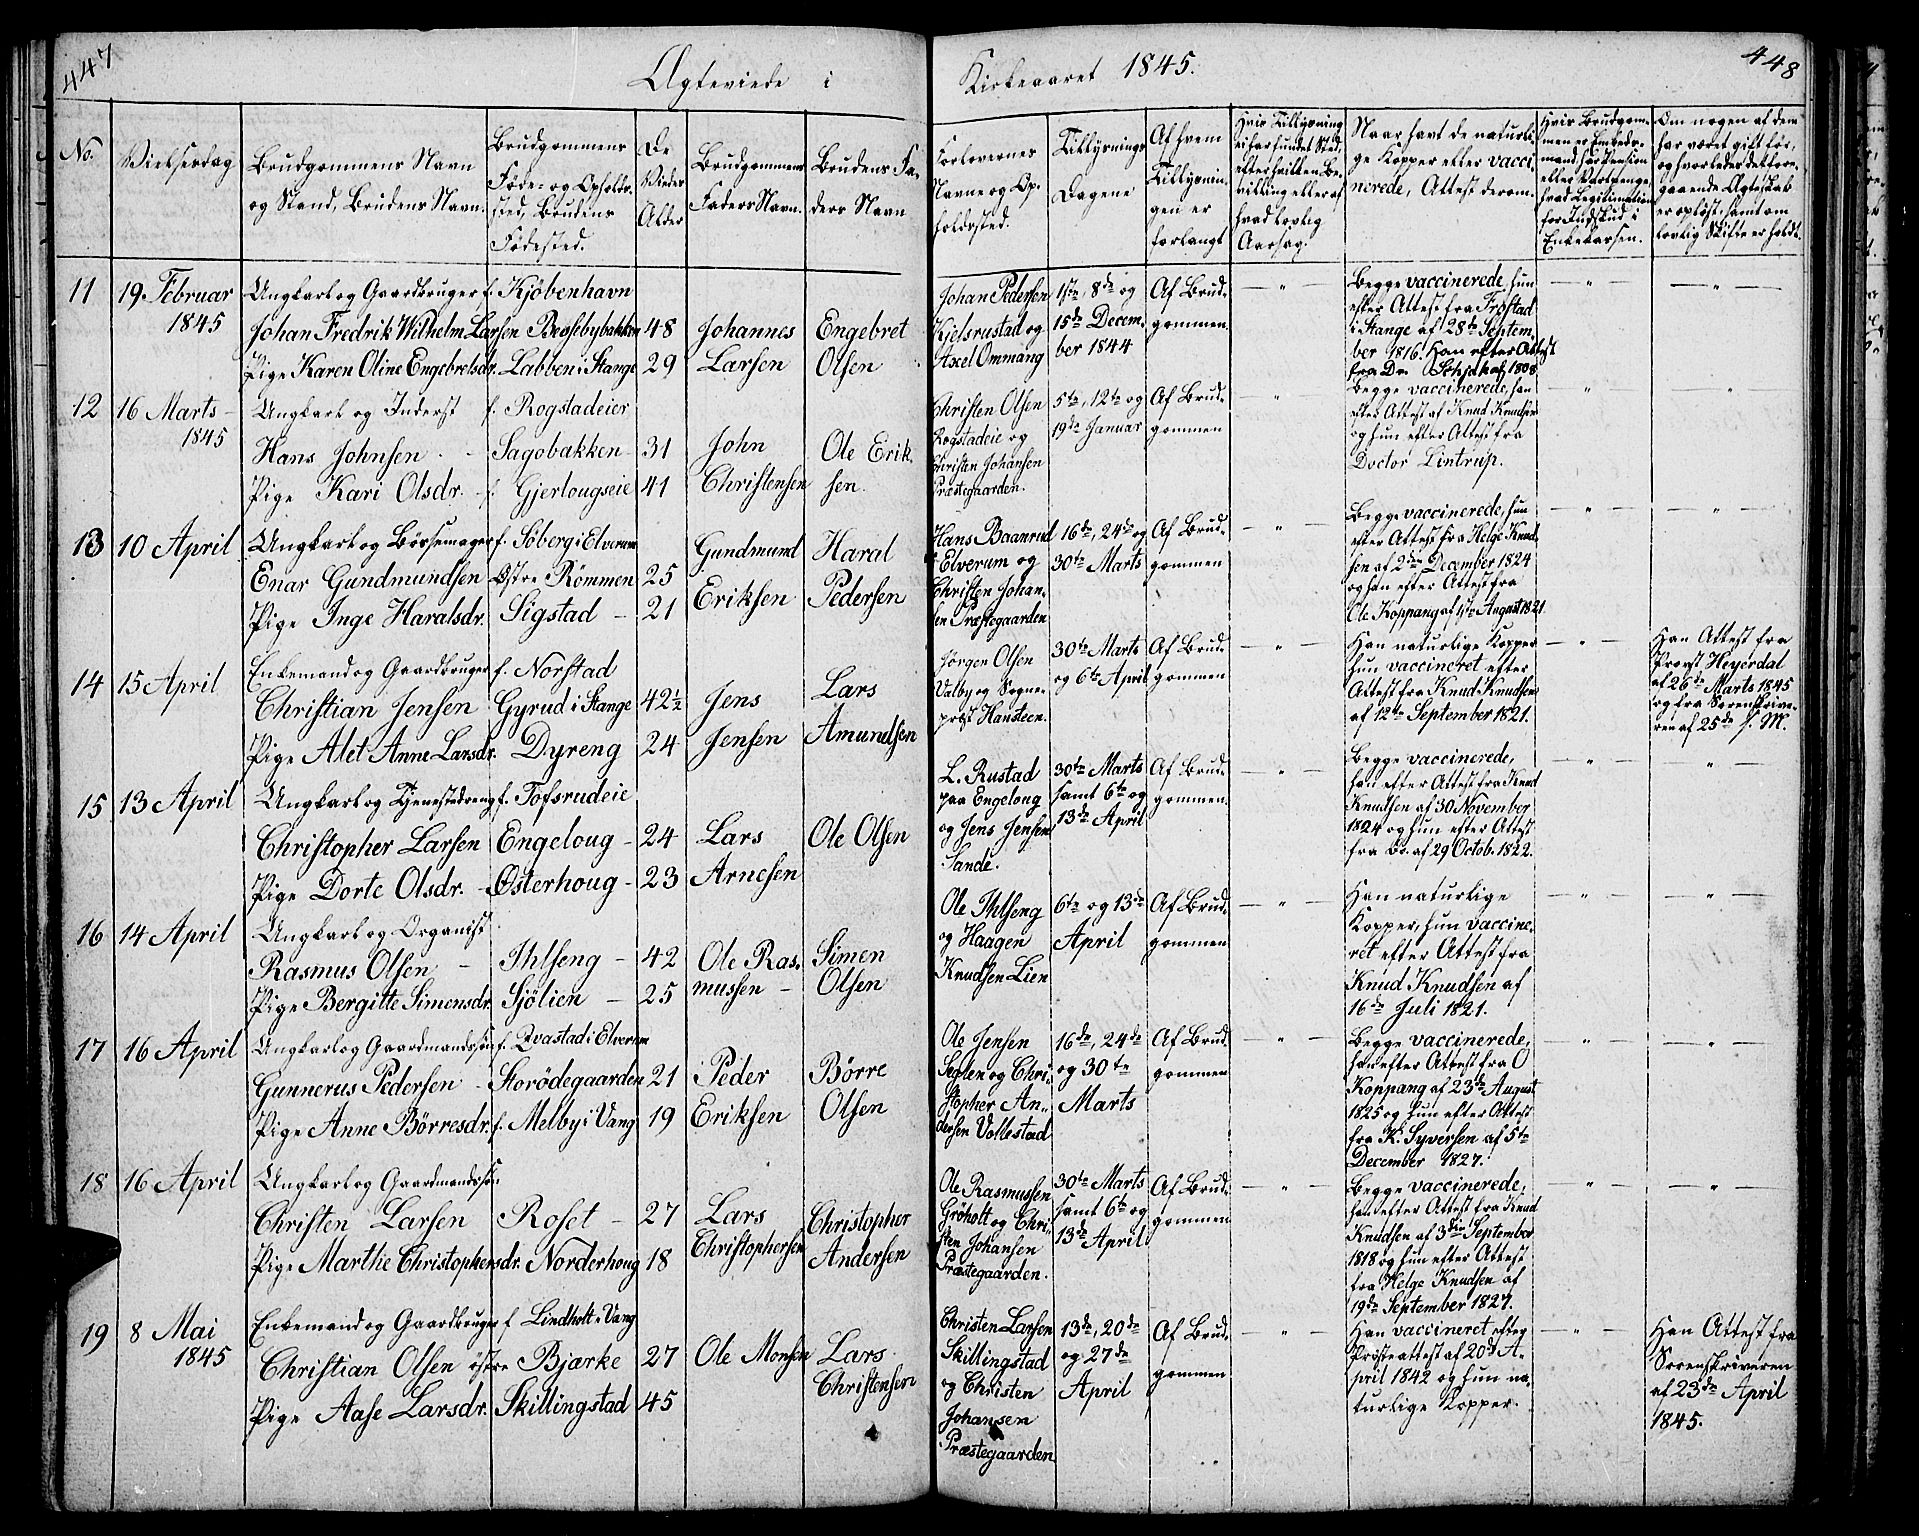 447
Ægteviede i
Kirkeaaret 1845.
448
No.
Vielsesdag
Brudgommens Navn
og Stand, Brudens Navn.
Brudgommens
Føde- og Opholds-
sted, Brudens
Fødested.
De
Viedes
Alder
Brudgommens
Faders Navn.
Brudens Fa-
ders Navn
Forlovernes
Navne og Op-
holdssted.
Tillysnings
Dagene
Af hvem
Tillysnin-
gen er
forlangt
Hvis Tillysning
ei har fundet Sted,
efter hvilken Be-
villing eller af
hvad lovlig
Aarsag.
Naar havt de naturli-
ge Kopper eller vacci-
nerede, Attest derom.
Hvis Brudgom-
men er Embeds-
mand, har Pension
eller Vartpenge,
hvad Legitimation
for Indskud i
Enkekassen.
Om nogen af dem
har været gift før,
og hvorledes det fore-
gaaende Ægteskab
er opløst, samt om
lovlig Skifte er holdt.
11
19. Februar
1845
Ungkarl og Gaardbruger f. Kjöbenhavn
Johan Fredrik Wilhelm Larsen Bessebybakken 48
Pige Karen Oline Engebretsdr. Labben i Stange 29
Johannes
Larsen
Engebret
Olsen
Johan Pedersen
Kjelsrustad og
Axel Ommang
1ste, 8de og
15de Decem-
ber 1844
Af Brud-
gommen
Begge vaccinerede, hun
efter Attest fra Frostad
i Stange af 28de Septem-
ber 1816. Han efter Attest
fra Dr. 1808
12
16 Marts
1845
Ungkarl og Inderst f. Rogstadeier
Hans Johnsen Sagobakken 31
Pige Kari Olsdr. f. Gjerlougseie 41
John
Christensen
Ole Erik-
sen.
Christen Olsen
Rogstadeie og
Christen Johansen
Præstegaarden.
5te, 12te og
19de Januar
Af Brud-
gommen
Begge vaccinerede, han
efter Attest af Knud Knudsen
og hun efter Attest fra
Doctor Lintrup.
13
10 April
Ungkarl og Börsemager f. Söberg i Elverum
Enar Gundmundsen Østre Römmen 25
Pige Inge Haralsdr. Sigstad 21
Gundmund
Eriksen
Haral
Pedersen
Hans Baanrud
i Elverum og
Christen Johan-
sen Præstegaarden
16de, 24de og
30te Marts
Af Brud-
gommen
Begge vaccinerede, hun
efter Attest fra Helge Knud-
sen af 2den December 1824
og han efter Attest fra
Ole Koppang af 1ste August 1821
14
15 April
Enkemand og Gaardbruger f. Norstad
Christian Jensen Gyrud i Stange 42½
Pige Alet Anne Larsdr. Dyreng 24
Jens
Jensen
Lars
Amundsen
Jørgen Olsen
Valby og Sogne-
præst Hansteen.
30te Marts
og 6te April
Af Brud-
gommen
Han naturlige Kopper
hun vaccineret efter
Attest fra Knud Knudsen
af 12te September 1821.
Han Attest fra
Provst Heyerdal
af 26de Marts 1845
og fra Sorenskrive-
ren af 25de s. M.
15
13 April
Ungkarl og Tjenestedreng f. Tofsrudeie
Christopher Larsen Engeloug 24
Pige Dorte Olsdr. Østerhoug 23
Lars
Arnesen
Ole Olsen
L. Rustad
paa Engeloug
og Jens Jensen
Sande.
30te Marts
samt 6te og
13de April
Af Brud-
gommen.
Begge vaccinerede,
han efter Attest fra Knud
Knudsen af 30 November
1824 og hun efter Attest
fra Do. af 29 Octob. 1822.
16
14 April
Ungkarl og Organist
Rasmus Olsen Ihlseng 42
Pige Bergitte Simensdr. Sjölien 25
Ole Ras-
mussen
Simen
Olsen
Ole Ihlseng
og Haagen
Knudsen Lien
6te og 13de
April
Af Brud-
gommen
Han naturlige
Kopper, hun vaccine-
ret efter Attest fra
Knud Knudsen af
16de Juli 1821.
17
16 April
Ungkarl og Gaardmandssön f. Qvastad i Elverum
Gunnerus Pedersen Storödegaarden 21
Pige Anne Börresdr. f. Melby i Vang 19
Peder
Eriksen
Börre
Olsen
Ole Jensen
Seglen og Chri-
stopher An-
dersen Vollestad
16de, 24de
og 30te
Marts
Af Brud-
gommen
Begge vaccinerede,
han efter Attest fra O
Koppang af 23de August
1825 og hun efter Attest
fra K. Syversen af 5te
December 1827.
18
16 April
Ungkarl og Gaardmandssön
Christen Larsen Roset 27
Pige Marthe Christophersdr. Norderhoug 18
Lars
Christophersen
Christopher
Andersen
Ole Rasmussen
Gröholt og Chri-
sten Johansen
Præstegaarden.
30te Marts
samt 6te og
13de April
Af Brud-
gommen
Begge vaccinerede,
han efter Attest fra Knud
Knudsen af 3die September
1818 og hun efter Attest
fra Helge Knudsen af
19de September 1827.
19
8 Mai
1845
Enkemand og Gaardbruger f Lindholt i Vang
Christian Olsen östre Bjærke 27
Pige Aase Larsdr. Skillingstad 45
Ole Monsen
Lars
Christensen
Christen Larsen
Skillingstad
og Christen
Johansen
Præstegaarden
13de, 20de
og 27de
April
Af Brud-
gommen
Han vaccineret efter
Præsteattest af 20de A-
pril 1842 og hun na-
turlige Kopper.
Han Attest fra
Sorenskriveren
af 23de April
1845.